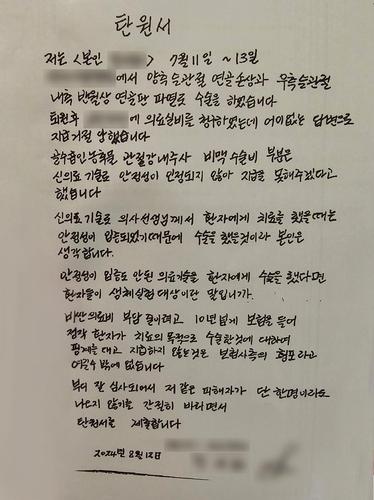 탄원서
저는 <본인 > 7월 11일 ~13일
에서 양측슬관절 연골손상과 우측슬관절
내측 반월상 연골판 파열로 수술을 하였습니다
퇴원후 에 의료실비를 청구하였는데 어이없는 답변으로
지급거절 당했습니다
골수흡인농축물 관절강내주사 비싼수술비 부분은
신의료 기술로 안정성이 인정되지 않아 지급을 못해주겠다고
했습니다
신의료기술로 의사선생님께서 환자에게 치료를 했을때는
안정성이 입증되었기때문에 수술을 했을것이라 본인은
생각합니다.
안정성이 입증도 안된 의료기술을 환자에게 수술을 했다면
환자들이 생체실험 대상이란 말입니까.
비싼의료비 부담 줄이려고 10년넘게 보험을 들어
정작 환자가 치료의 목적으로 수술한것에 대하여
핑계를 대고 지급하지 않는것은 보험사측의 횡포라고
여길수 밖에 없습니다
부디 잘 심사되어서 저 같은 피해자가 단 한명이라도
나오지 않기를 간절히 바라면서
탄원서를 제출합니다
2024년 8월 12일